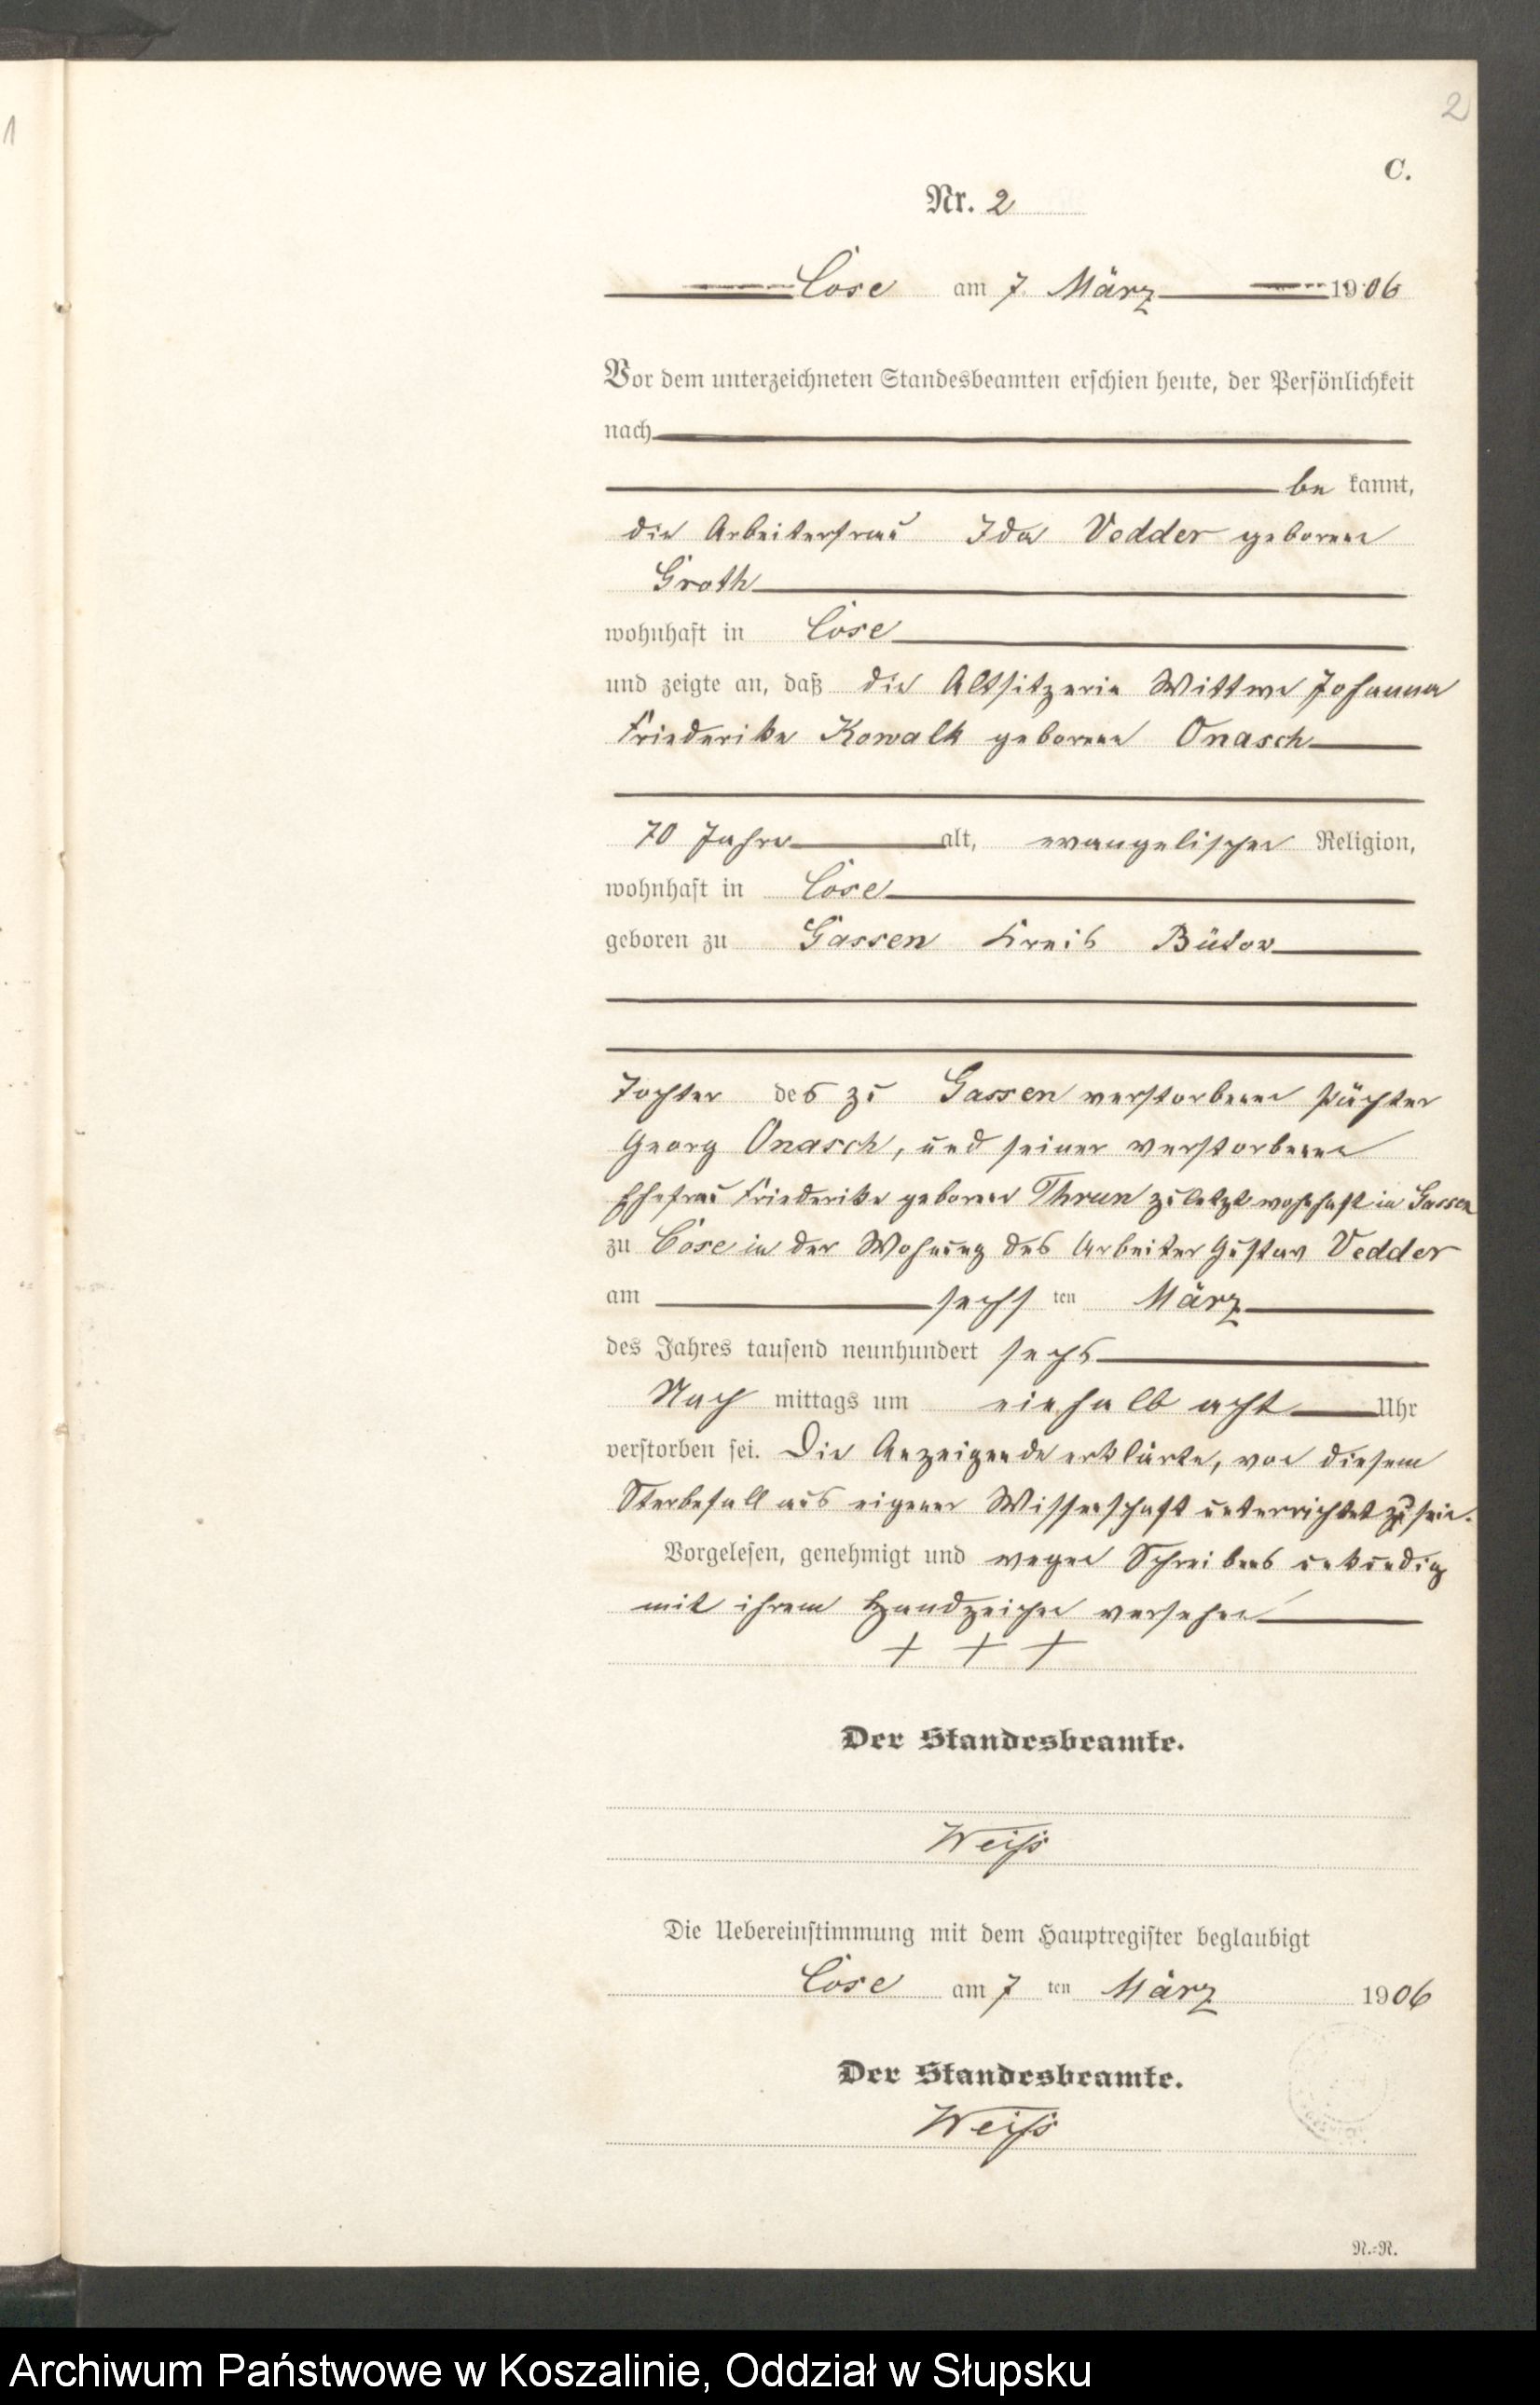 1
2
C.
Nr. 2
Cose am 7 März 1906
Vor dem unterzeichneten Standesbeamten erschien heute, der Persönlichkeit
nach
be kannt,
die Arbeiterfrau Ida Vedder geborene
Groth
wohnhaft in Cose
und zeigte an, daß die Altsitzerin Wittwe Johanna
Friederike Kowalk geborene Onasch
70 Jahre alt, evangelischer Religion,
wohnhaft in Cose
geboren zu Gassen Kreis Bütow
Tochter des zu Gassen verstorbenen Pächter
Georg Onasch, und seiner verstorbenen
Ehefrau Friederike geborene Thrun zuletzt wohnhaft in Gassen
zu Cose in der Wohnung des Arbeiter Gustav Vedder
am sechs ten März
des Jahres tausend neunhundert sechs
Nach mittags um einhalb acht Uhr
verstorben sei. Die Anzeigende erklärte, von diesem
Sterbefall aus eigener Wissenschaft unterrichtet zu sein.
Vorgelesen, genehmigt und wegen Schreibens unkundig
mit ihrem Handzeichen versehen
+ + +
Der Standesbeamte.
Weiß
Die Uebereinstimmung mit dem Hauptregister beglaubigt
Cose am 7 ten März 1906
Der Standesbeamte.
Weiß
R.=R.
Archiwum Państwowe w Koszalinie, Oddział w Słupsku